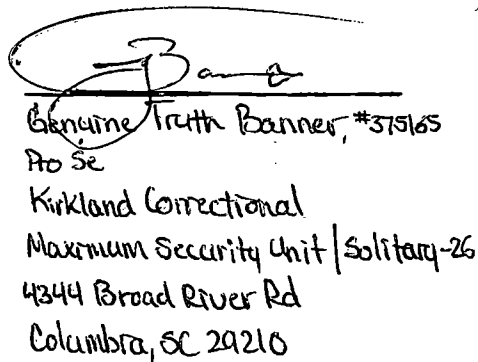 Genuine Truth Banner, #375165
Pro Se
Kirkland Correctional
Maximum Security Unit | Solitary-26
4344 Broad River Rd
Columbia, SC 29210